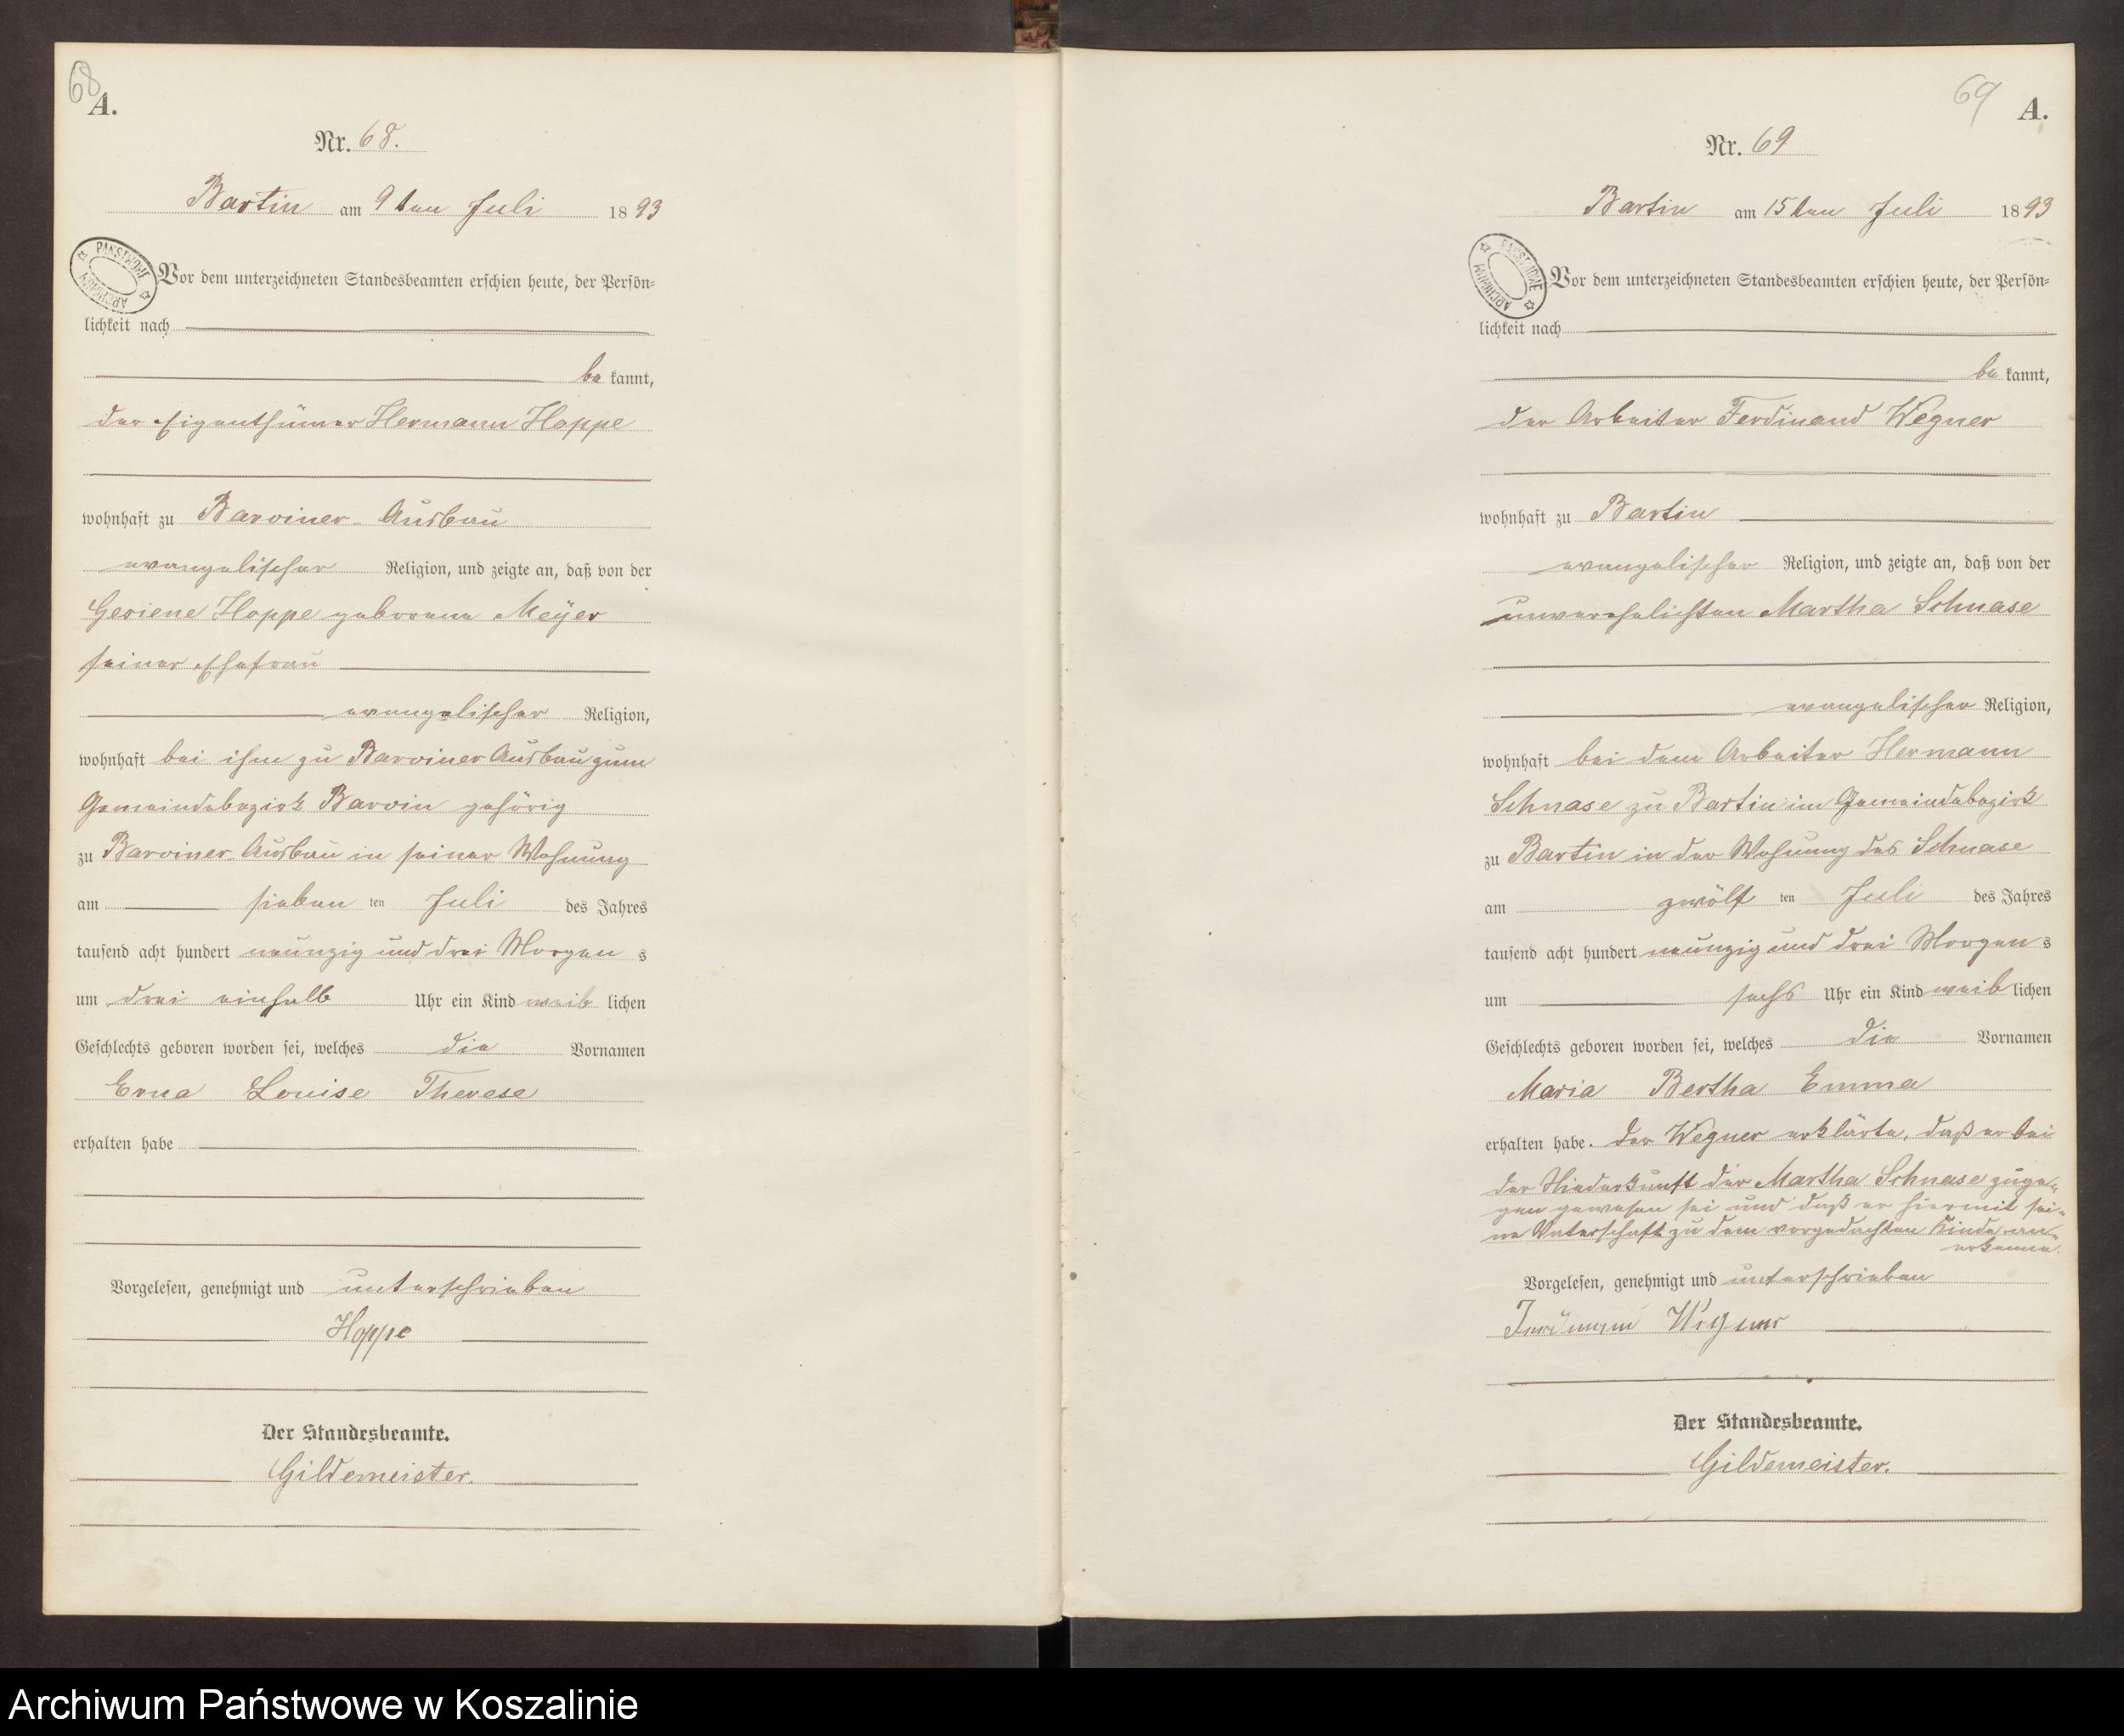 68
A.
Nr. 68.
Bartin am 9ten Juli 1893
Vor dem unterzeichneten Standesbeamten erschien heute, der Persön=
lichkeit nach
be kannt,
der Eigenthümer Hermann Hoppe
wohnhaft zu Barviner-Ausbau
evangelischer Religion, und zeigte an, daß von der
Gesiene Hoppe geborene Meÿer
seiner Ehefrau
evangelischer Religion,
wohnhaft bei ihm zu Barviner Ausbau zum
Gemeindebezirk Barvin gehörig
zu Barviner-Ausbau in seiner Wohnung
am sieben ten Juli des Jahres
tausend acht hundert neunzig und drei Morgen s
um drei einhalb Uhr ein Kind weib lichen
Geschlechts geboren worden sei, welches die Vornamen
Erna Louise Therese
erhalten habe
Vorgelesen, genehmigt und unterschrieben
Hoppe
Der Standesbeamte.
Gildemeister.
69
A.
Nr. 69
Bartin am 15ten Juli 1893
Vor dem unterzeichneten Standesbeamten erschien heute, der Persön=
lichkeit nach
be kannt,
der Arbeiter Ferdinand Wegner
wohnhaft zu Bartin
evangelischer Religion, und zeigte an, daß von der
unverehelichten Martha Schnase
evangelischer Religion,
wohnhaft bei dem Arbeiter Hermann
Schnase zu Bartin im Gemeindebezirk
zu Bartin in der Wohnung des Schnase
am zwölf ten Juli des Jahres
tausend acht hundert neunzig und drei Morgen s
um sechs Uhr ein Kind weib lichen
Geschlechts geboren worden sei, welches die Vornamen
Maria Bertha Emma
erhalten habe. Der Wegner erklärte, daß er bei
der Niederkunft der Martha Schnase zuge=
gen gewesen sei und daß er hiermit sei=
ne Vaterschaft zu dem vorgedachten Kinde an=
erkenne.
Vorgelesen, genehmigt und unterschrieben
Ferdinand Wegner
Der Standesbeamte.
Gildemeister.
ARCHIWUM PAŃSTWOWE
ARCHIWUM PAŃSTWOWE
Archiwum Państwowe w Koszalinie